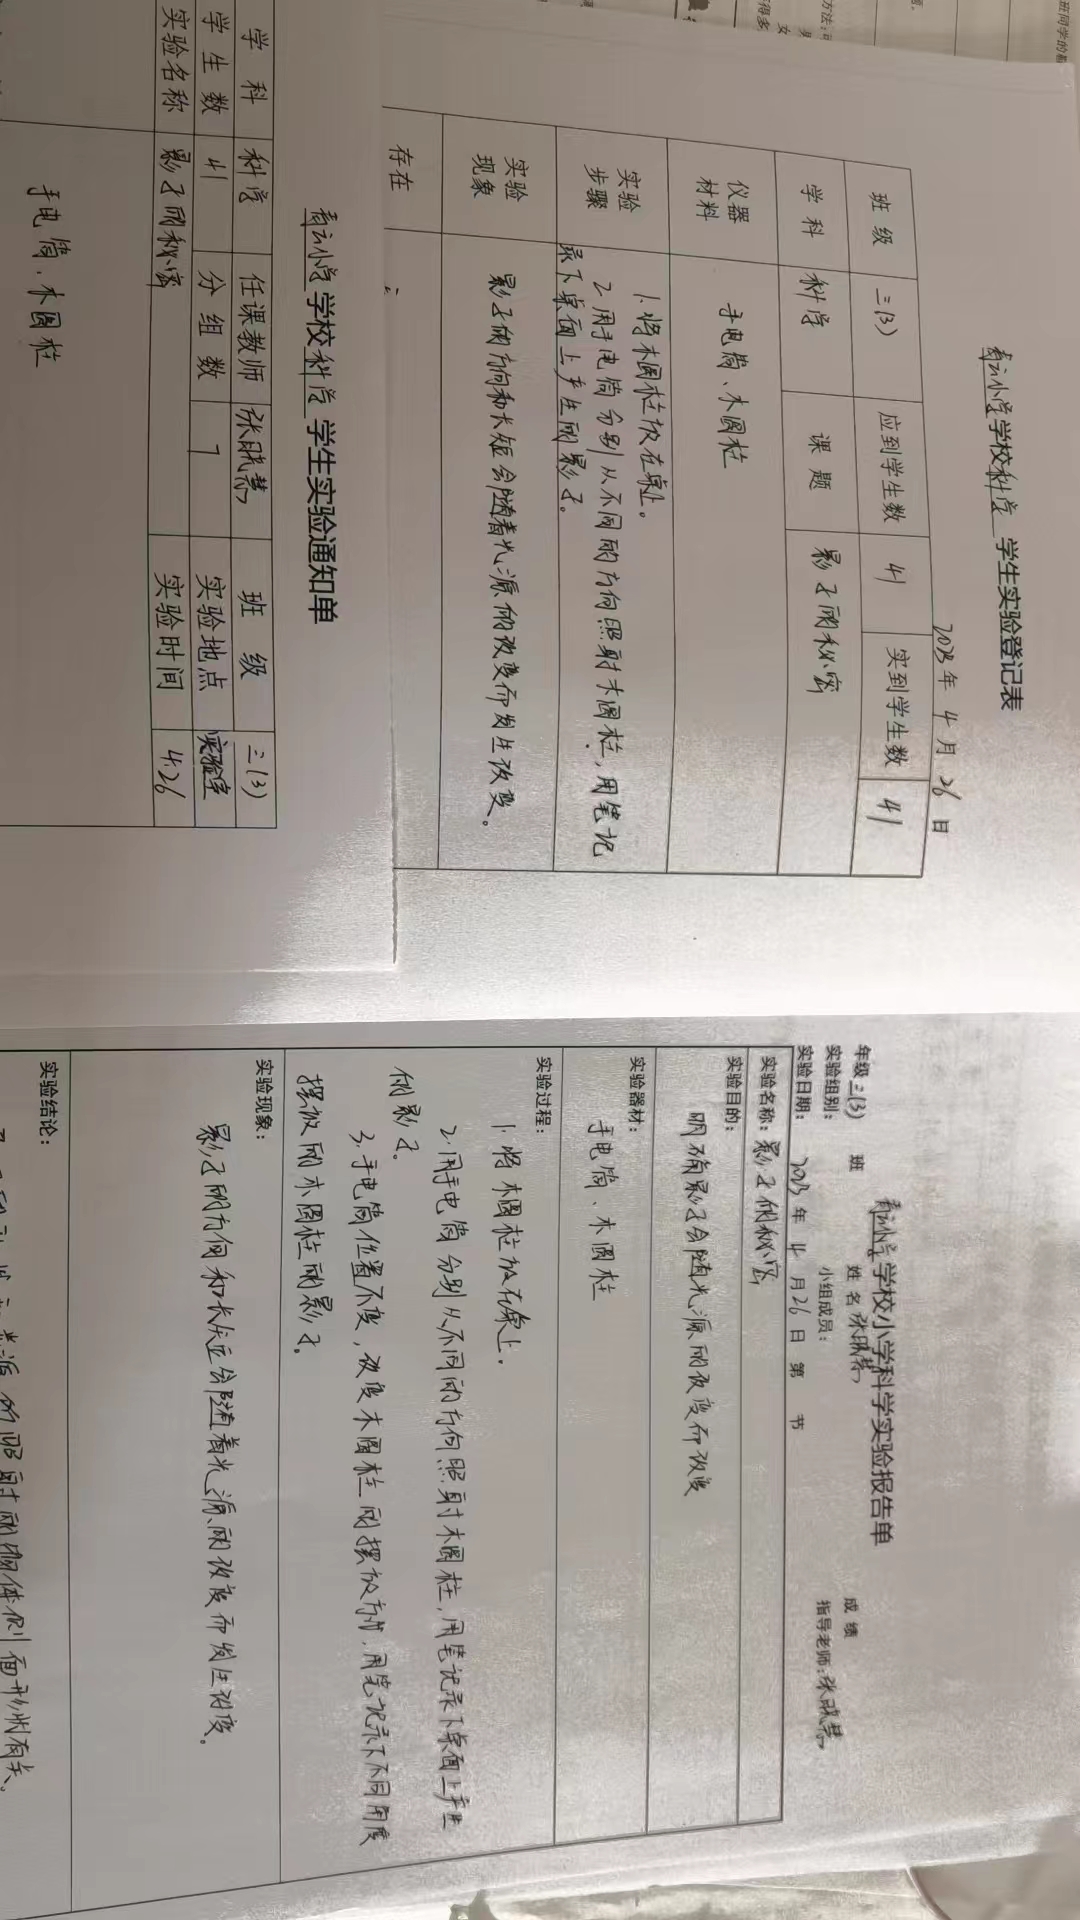 学校科学 学生实验登记表
2023年 4月 26日
班 级 三(3) 应到学生数 41 实到学生数 41
学 科 科学 课 题 影子的秘密
仪器材料 手电筒、木圆柱
实验步骤 1.将木圆柱放在桌上。
2.用手电筒分别从不同的方向照射木圆柱,用笔记
录下桌面上产生的影子。
实验现象 影子的方向和长短会随着光源的改变而发生改变。
存在
学校科学 学生实验通知单
学 科 科学 任课教师 班 级 三(3)
学 生 数 41 分 组 数 7 实验地点 实验室
实验名称 影子的秘密 实验时间 4.26
手电筒、木圆柱
学校小学科学实验报告单
年级三(3) 班 姓 名 成 绩
实验组别: 小组成员: 指导老师:
实验日期: 2023年 4月26日 第 节
实验名称:影子的秘密
实验目的:
明确影子会随光源的改变而改变
实验器材:
手电筒、木圆柱
实验过程:
1.将木圆柱放在桌上。
2.用手电筒分别从不同的方向照射木圆柱,用笔记录下桌面上产生
的影子。
3.手电筒位置不变,改变木圆柱的摆放方式,用笔记录下不同角度
摆放的木圆柱的影子。
实验现象:
影子的方向和长短会随着光源的改变而发生改变。
实验结论:
光源的照射的物体侧面形状有关。